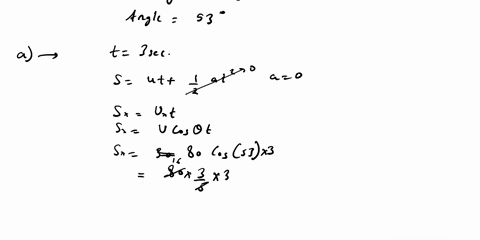 Angle = 53°
a) → t = 3sec.
S = ut + 1/2 at² → 0 a = 0
Sx = Uxt
Sx = U Cos θ t
Sx = 80 Cos (53) × 3
= 80 16 × 3/5 × 3